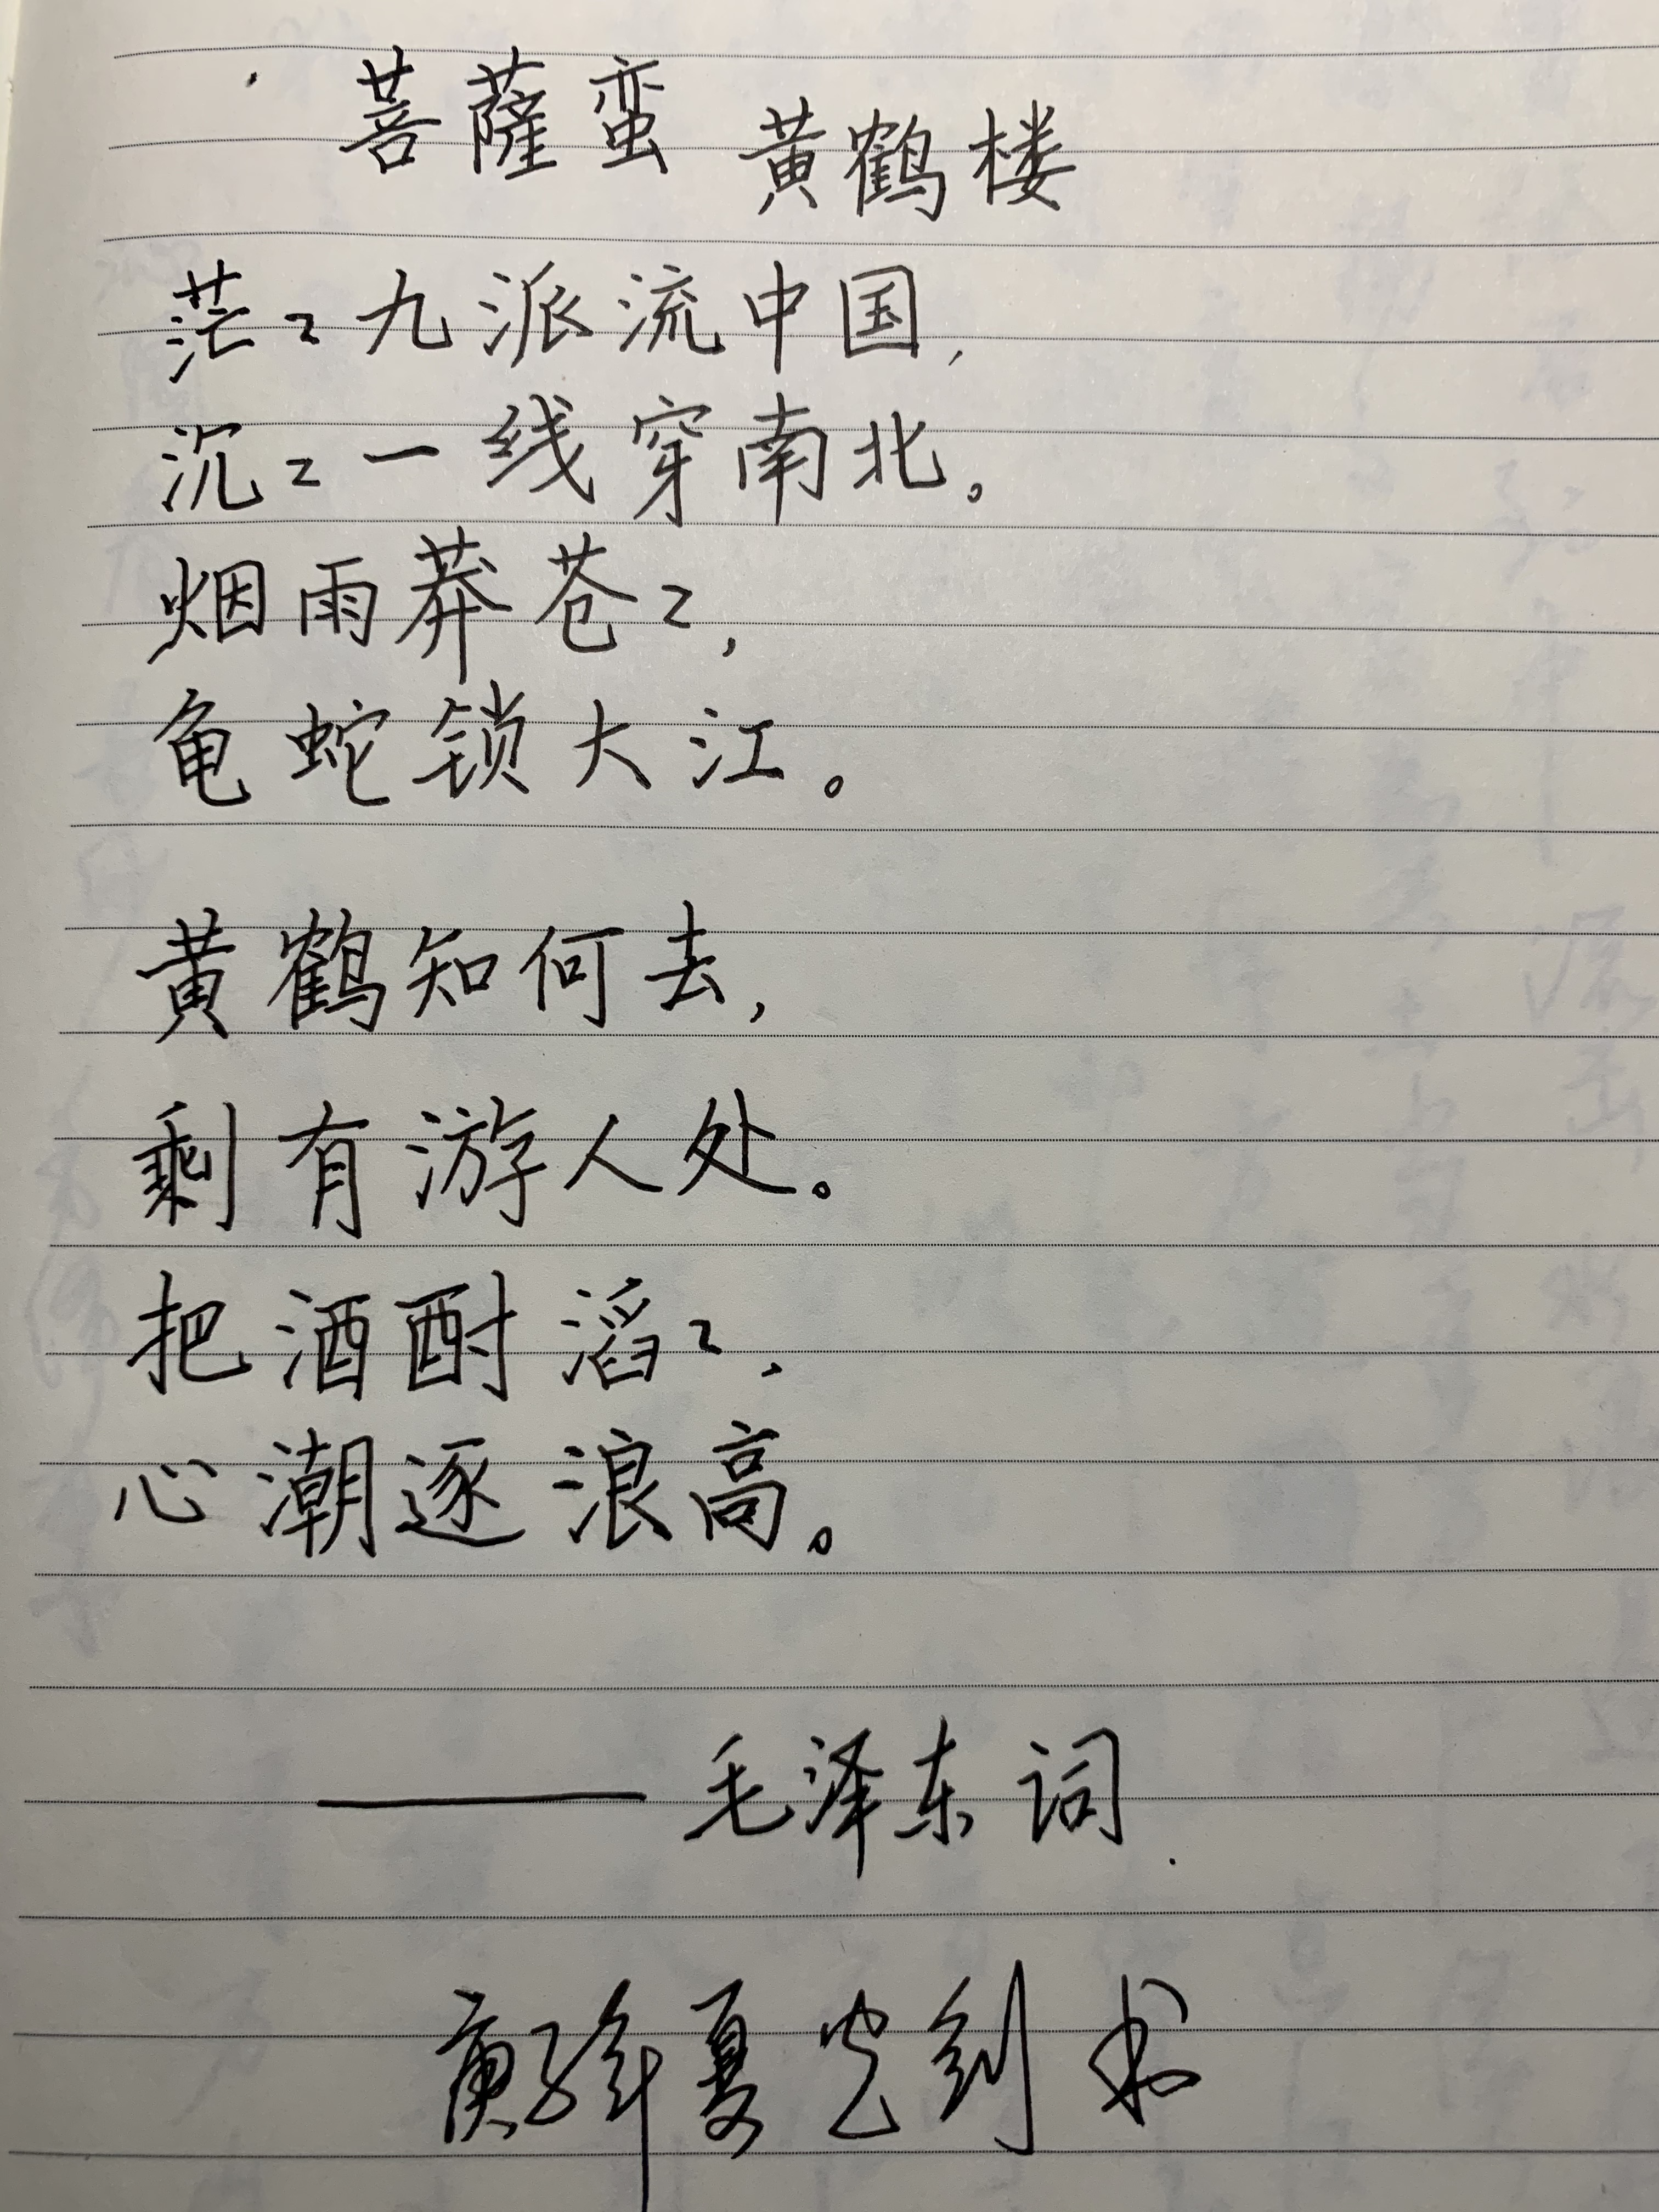 菩薩蛮 黄鹤楼
茫〻九派流中国，
沉〻一线穿南北。
烟雨莽苍〻，
龟蛇锁大江。
黄鹤知何去，
剩有游人处。
把酒酹滔〻，
心潮逐浪高。
——毛泽东词
庚子年夏 书